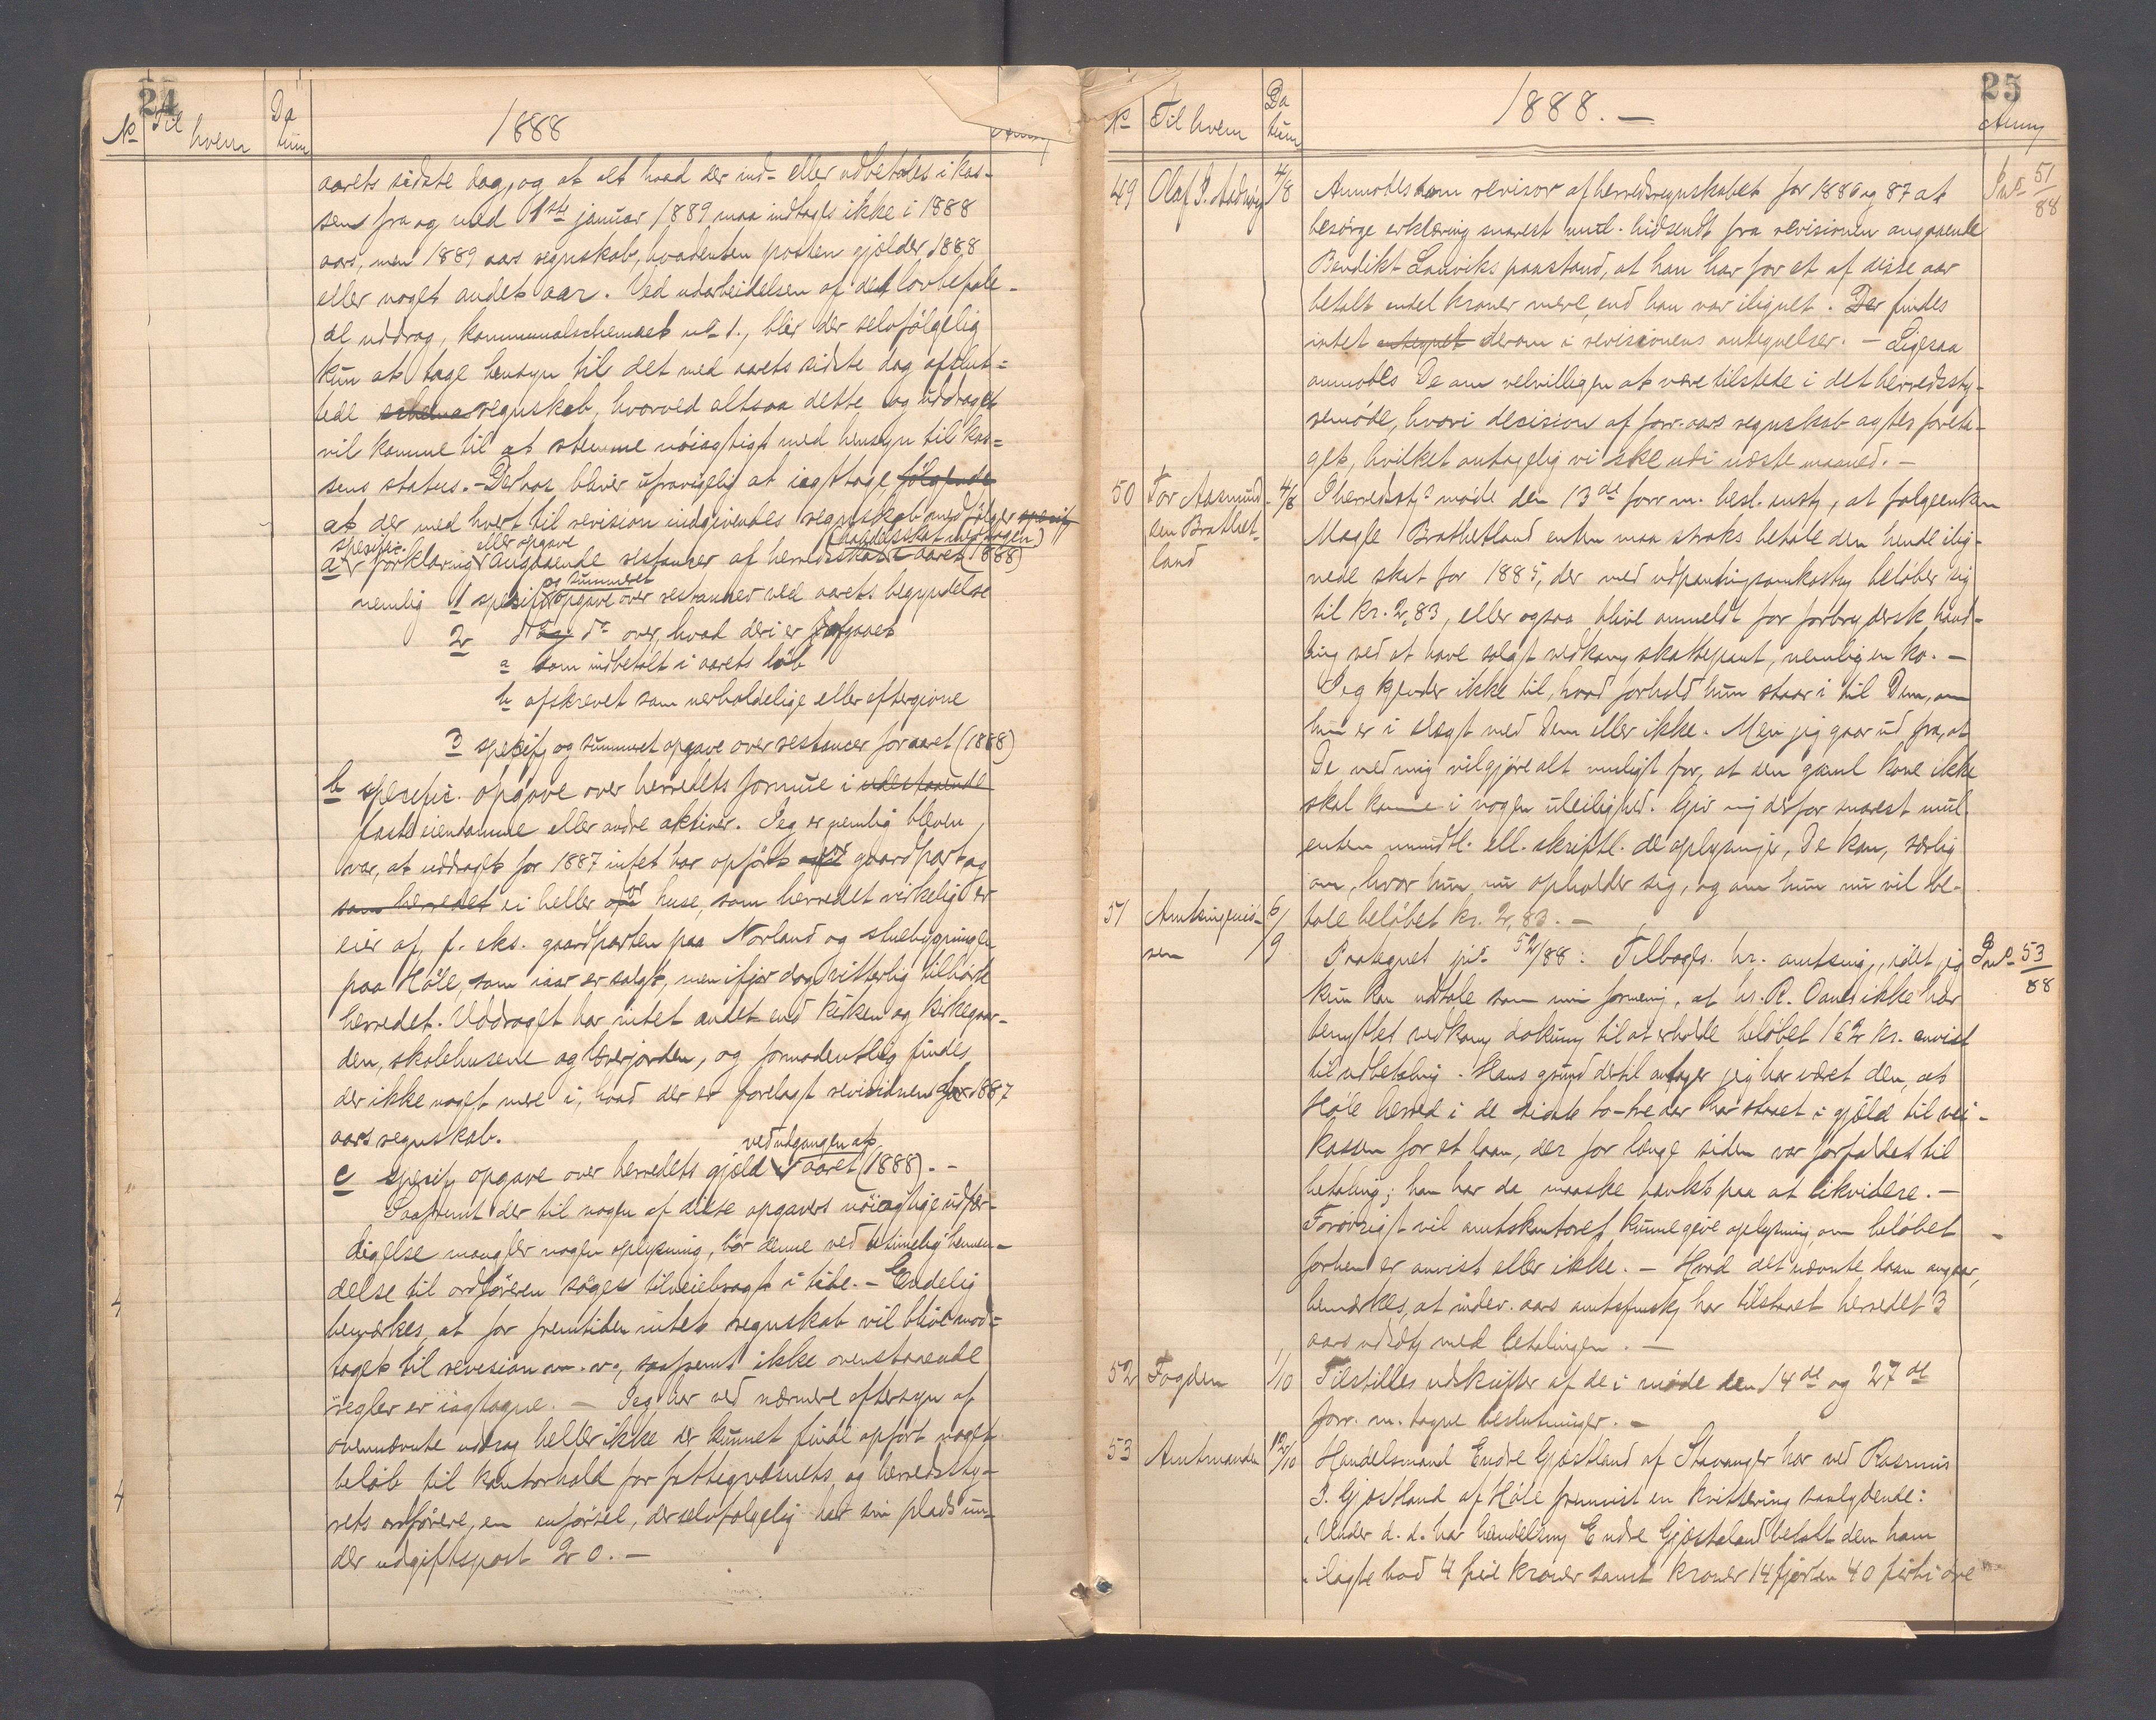 24
No Til hvem Da tum 1888 Anm
aarets sidste dag, og at alt hvad der ind- eller udbetales i kas-
sen fra og med 1ste januar 1889 maa indtages ikke i 1888
aars, men 1889 aars regnskab, hvadenten posten gjelder 1888
eller noget andet aar. Ved udarbeidelsen af det lovbefale-
de uddrag, kommunalschemaet no 1., blir der selvfølgelig
kun at tage hensyn til det med aarets sidste dag afslut=
tede schema regnskab, hvorved altsaa dette og uddraget
vil komme til at stemme nøiagtigt med hensyn til kas=
sens status. - Derhos bliver ufravigelig at iagttage følgende
at der med hvert til revision indgivendes regnskab medfølger specif
a specific. forklaring eller opgave angaaende restancer af herredsskat aaret (1888)
nemlig 1 specif og summeret opgave over restancer ved aarets begyndelse
2 do og do over, hvad deri er afgaaet
a som indbetalt i aarets løb
b afskrevet som uerholdelige eller eftergivne
3 specif og summeret opgave over restancer for aaret (1888)
b specific. opgave over herredets formue i udestaaende
faste eiendomme eller andre aktiver. Jeg er nemlig bleven
var, at uddraget for 1887 intet har opført gaardpart og
som herredet ei heller huse, som herredet virkelig er
eier af, f. eks. gaardparten paa Norland og stuebygningen
paa Høle, som iaar er solgt, men ifjor dog vitterlig tilhørte
herredet. Uddraget har intet andet end kirken og kirkegaar-
den, skolehusene og Løverjorden, og formodentlig findes
der ikke noget mere i, hvad der er forelagt revisionen for 1887
aars regnskab.
c specif opgave over herredets gjæld ved udgangen af aaret (1888). -
Saafremt der til nogen af disse opgavers nøiagtige udfær-
digelse mangler nogen oplysning, bør denne ved betimelig henven-
delse til ordføreren søges tilveiebragt i tide. - Endelig
bemærkes, at for fremtiden intet regnskab vil blive mod=
taget til revision m. v., saafremt ikke ovenstaaende
regler er iagttagne. - Jeg har ved nærmere eftersyn af
ovennævnte uddrag heller ikke der kunnet finde opført noget
beløb til kontorhold for fattigvæsnets og herredssty-
rets ordførere, en udførsel, der selvfølgelig har sin plads un-
der udgiftspost 20. -
25
No Til hvem Da tum 1888. - Anm
49 Olaf I. Aadnøy 4/8 Anmodes som revisor af herredsregnskabet for 1886 og 87 at Jno 51/88
besørge erklæring snarest mul. hidsendt fra revisionen angaaende
Bendikt Lauviks paastand, at han har for et af disse aar
betalt endel kroner mere, end han var ilignet. Der findes
intet antegnet derom i revisionens antegnelser. - Ligesaa
anmodes De om velvilligen at være tilstede i det herredssty-
remøde, hvori decision af forr. aars regnskab agtes foreta-
get, hvilket antagelig vi ske udi næste maaned. -
50 Tor Aasmundsen Brathetland 4/8 I herredsst møde den 13de forr m. besl. enst, at folgeenken
Magle Brathetland enten maa straks betale den hende ilig-
nede skat for 1885, der med udpantningsomkostn beløber sig
til kr. 2,83, eller ogsaa blive anmeldt for forbrydersk hand-
ling ved at have solgt vedkomm skattepant, nemlig en ko. -
Jeg kjender ikke til, hvad forhold hun staar i til Dem, om
hun er i slegt med Dem eller ikke. Men jeg gaar ud fra, at
De med mig vil gjøre alt muligt for, at den gaml kone ikke
skal komme i nogen uleilighed. Giv mig derfor snarest mul.
enten mundtl. ell. skriftl. de oplysninger, De kan, særlig
om, hvor hun nu opholder sig, og om hun nu vil be-
tale beløbet kr. 2,83. -
51 Amtsingeniøren 6/9 Paategnet jno 52/88: Tilbages. hr. amtsing, idet jeg Jno 53/88
kun kan udtale som min formening, at hr. R. Oanes ikke har
benyttet vedkomm dokum til at erholde beløbet 162 kr. anvist
til udbetaling. Hans grund dertil antager jeg har været den, at
Høle herred i de sidste to-tre aar har staaet i gjæld til vei-
kassen for et laan, der for længe siden var forfaldet til
betaling; han har da maaske tænkt paa at likvidere. -
Forøvrigt vil amtskontoret kunne give oplysning, om beløbet
forhen er anvist eller ikke. - Hvad det nævnte laan angaar,
bemærkes, at indev. aars amtsformsk har tilstaaet herredet 3
aars udsætt med betalingen. -
52 Fogden 1/10 Tilstilles udskrifter af de i møde den 14de og 27de
forr. m. tagne beslutninger. -
53 Amtmanden 12/10 Handelsmand Endre Gjøstland af Stavanger har ved Rasmus
I. Gjøstland af Høle fremvist en kvittering saalydende:
"Under d. d. har handelsmand Endre Gjøsteland betalt den ham
"ilagte bod 4 fire kroner samt kroner 14 fjorten 40 firti øre